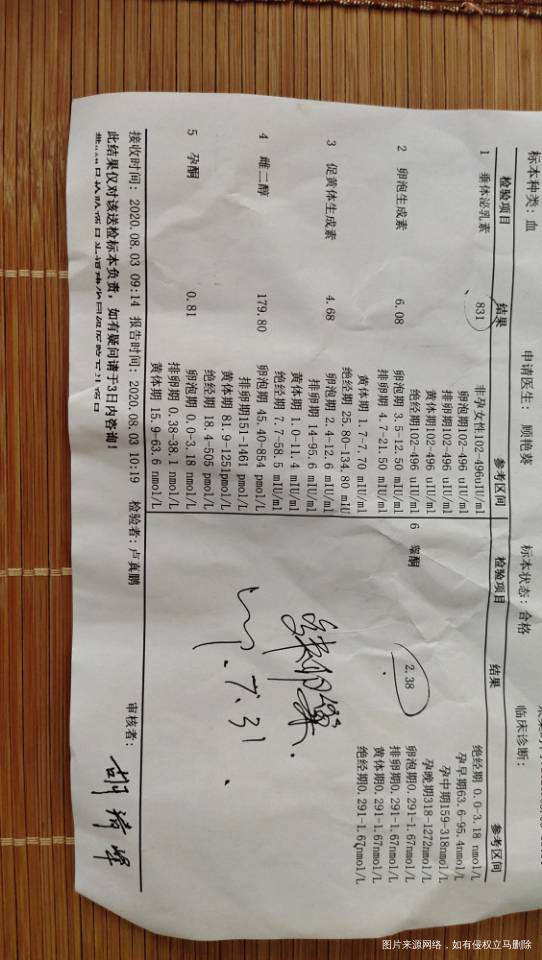 标本种类: 血
申请医生: 顾艳葵
标本状态: 合格
临床诊断:
检验项目 结果 参考区间
1 垂体泌乳素 831 非孕女性102-496uIU/ml
卵泡期102-496 uIU/ml
排卵期102-496 uIU/ml
黄体期102-496 uIU/ml
绝经期102-496 uIU/ml
2 卵泡生成素 6.08 卵泡期 3.5-12.50 mIU/ml
排卵期 4.7-21.50 mIU/ml
黄体期 1.7-7.70 mIU/ml
绝经期 25.80-134.80 mIU
3 促黄体生成素 4.68 卵泡期 2.4-12.6 mIU/ml
排卵期 14-95.6 mIU/ml
黄体期 1.0-11.4 mIU/ml
绝经期 7.7-58.5 mIU/ml
4 雌二醇 179.80 卵泡期 45.40-854 pmol/L
排卵期151-1461 pmol/L
黄体期 81.9-1251pmol/L
绝经期 18.4-505 pmol/L
5 孕酮 0.81 卵泡期 0.0-3.18 nmol/L
排卵期 0.38-38.1 nmol/L
黄体期 15.9-63.6 nmol/L
检验项目 结果 参考区间
绝经期 0.0-3.18 nmol/L
孕早期63.6-95.4nmol/L
孕中期159-318nmol/L
孕晚期318-1272nmol/L
6 睾酮 2.38 卵泡期0.291-1.67nmol/L
排卵期0.291-1.67nmol/L
黄体期0.291-1.67nmol/L
绝经期0.291-1.67nmol/L
7.31
接收时间: 2020.08.03 09:14 报告时间: 2020.08.03 10:19 检验者: 卢真鹏 审核者:
此结果仅对该送检标本负责，如有疑问请于3日内咨询!
图片来源网络，如有侵权立马删除